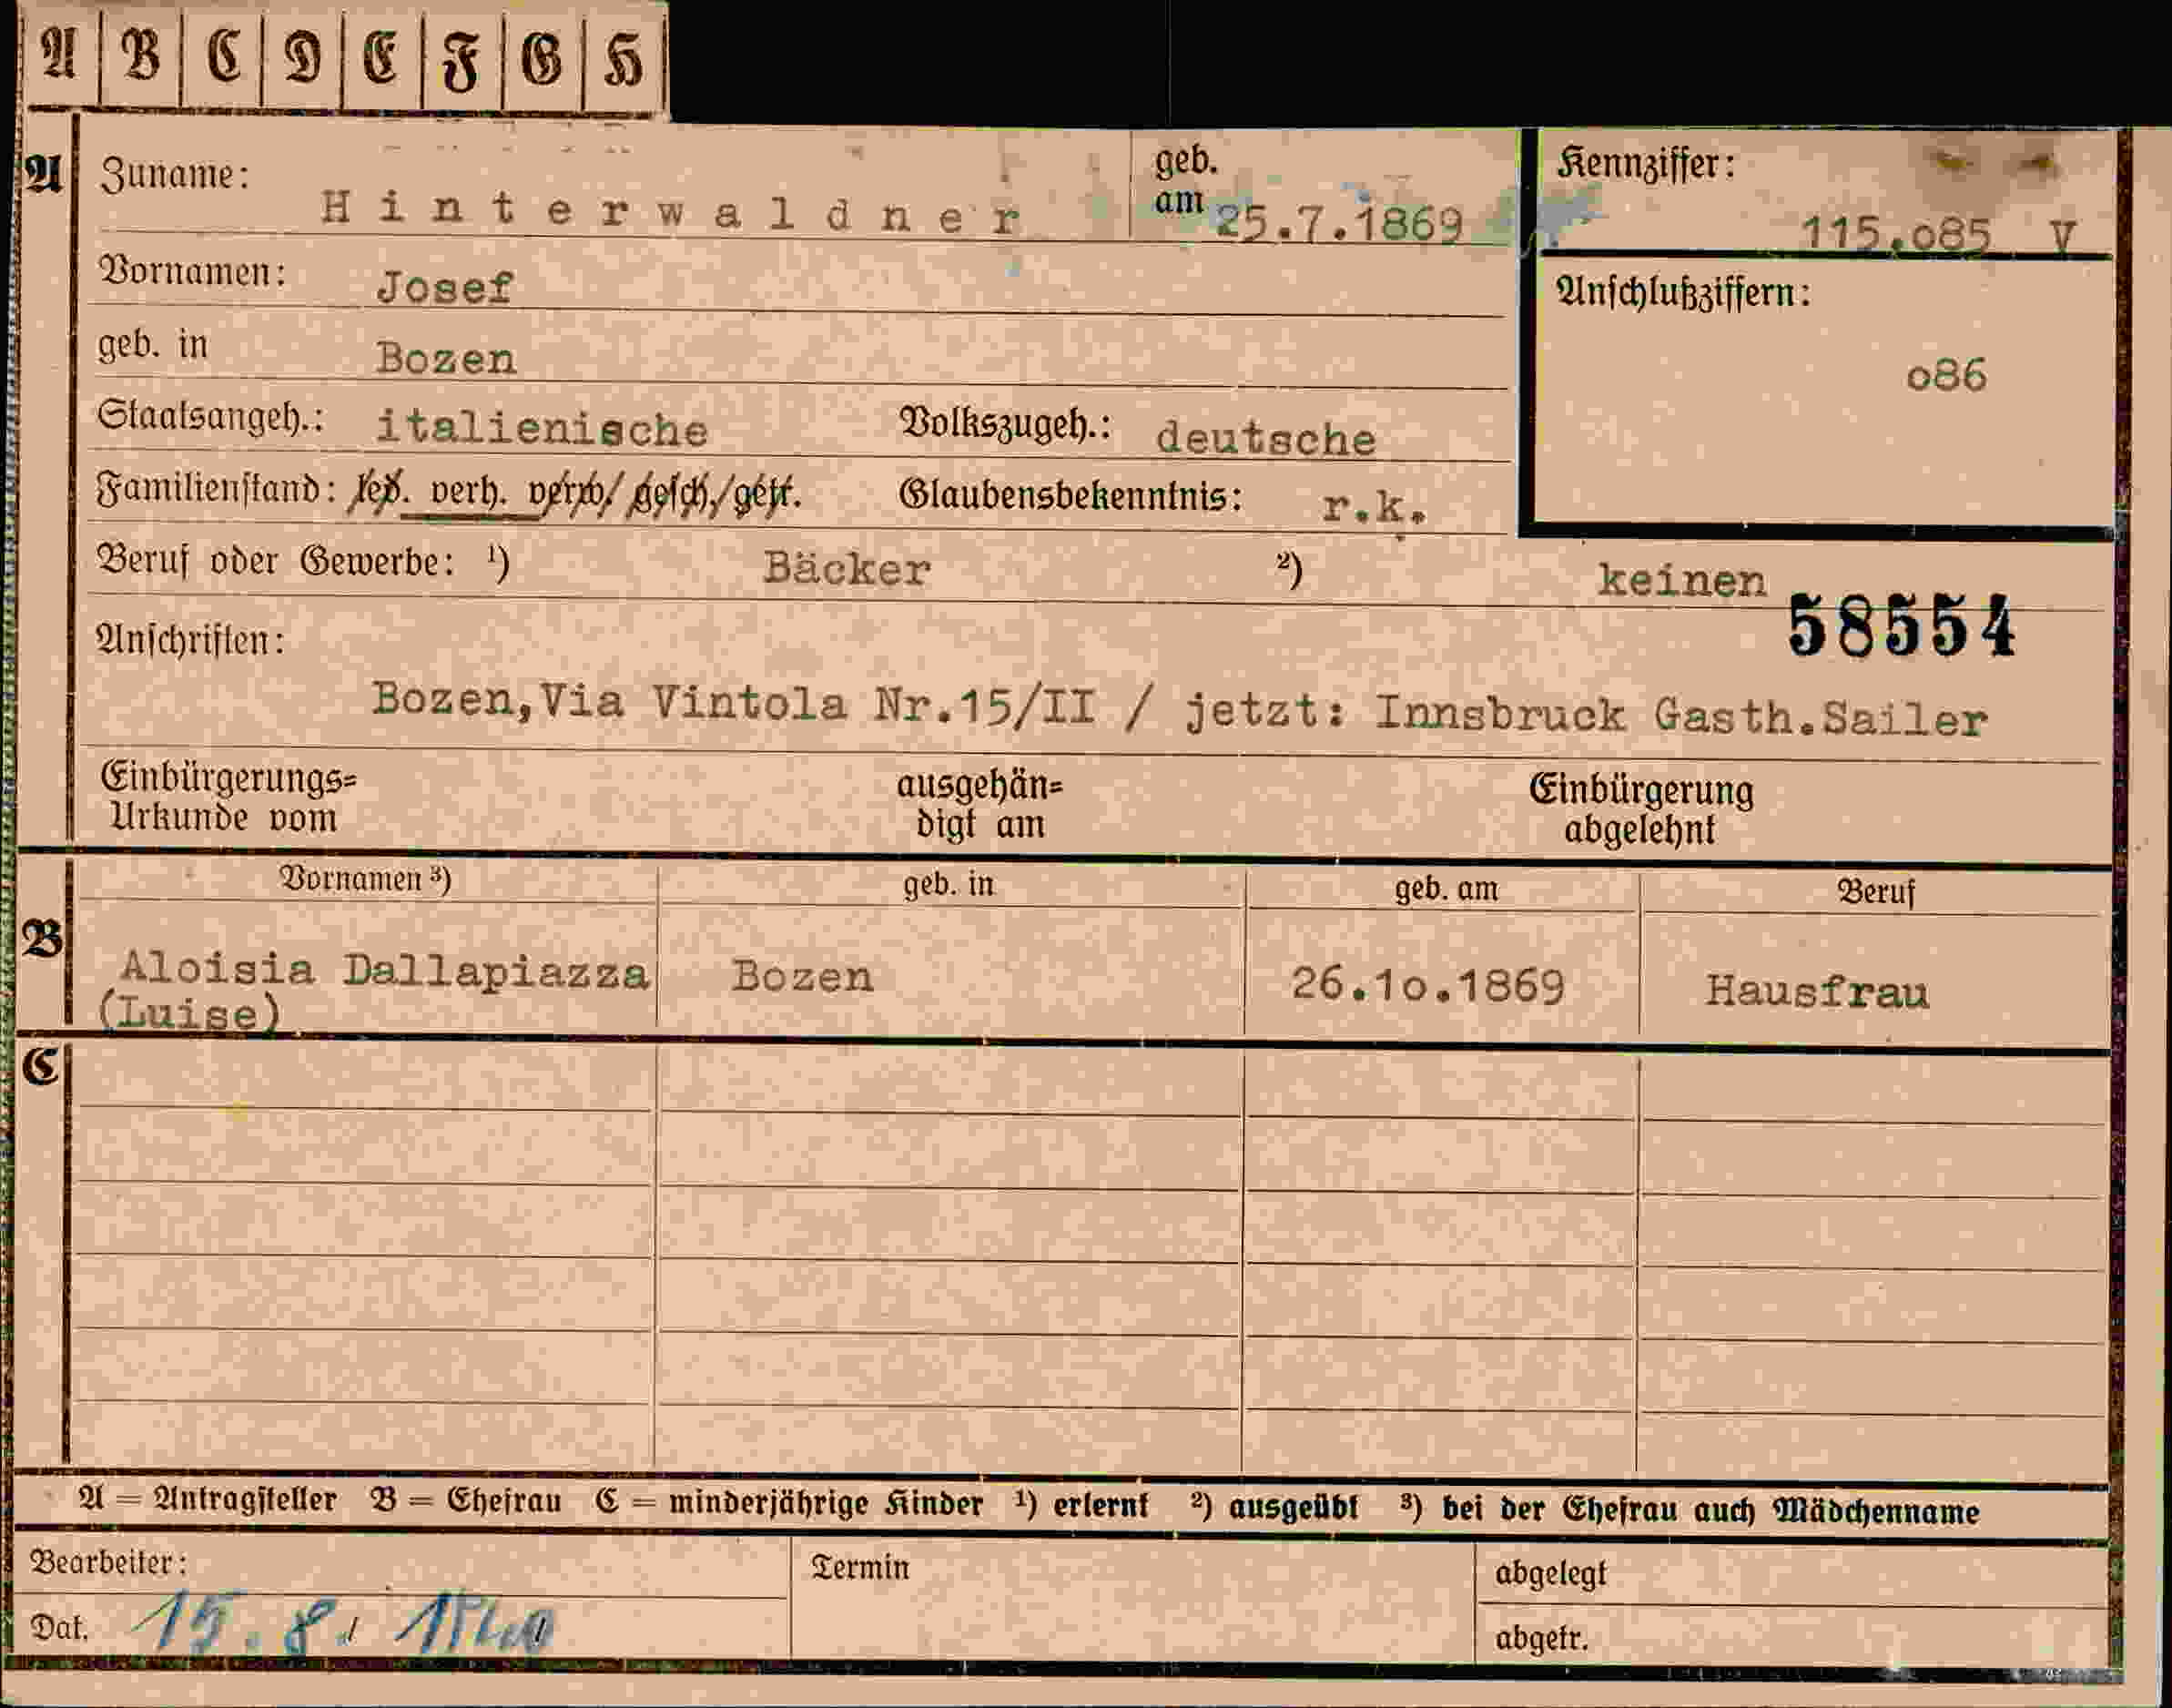 A B C D E F G H
A Zuname: Hinterwaldner geb. am 25.7.1869 Kennziffer: 115.o85 V
Vornamen: Josef Anschlußziffern:
geb. in Bozen o86
Staatsangeh.: italienische Volkszugeh.: deutsche
Familienstand: led. verh. verw. gesch. getr. Glaubensbekenntnis: r.k.
Beruf oder Gewerbe: ¹) Bäcker ²) keinen
58554
Anschriften:
Bozen,Via Vintola Nr.15/II / jetzt: Innsbruck Gasth.Sailer
Einbürgerungs= ausgehän= Einbürgerung
Urkunde vom digt am abgelehnt
Vornamen ³) geb. in geb. am Beruf
B Aloisia Dallapiazza Bozen 26.1o.1869 Hausfrau
(Luise)
C
A = Antragsteller B = Ehefrau C = minderjährige Kinder ¹) erlernt ²) ausgeübt ³) bei der Ehefrau auch Mädchenname
Bearbeiter: Termin abgelegt
Dat. 15.8. 1940 abgetr.